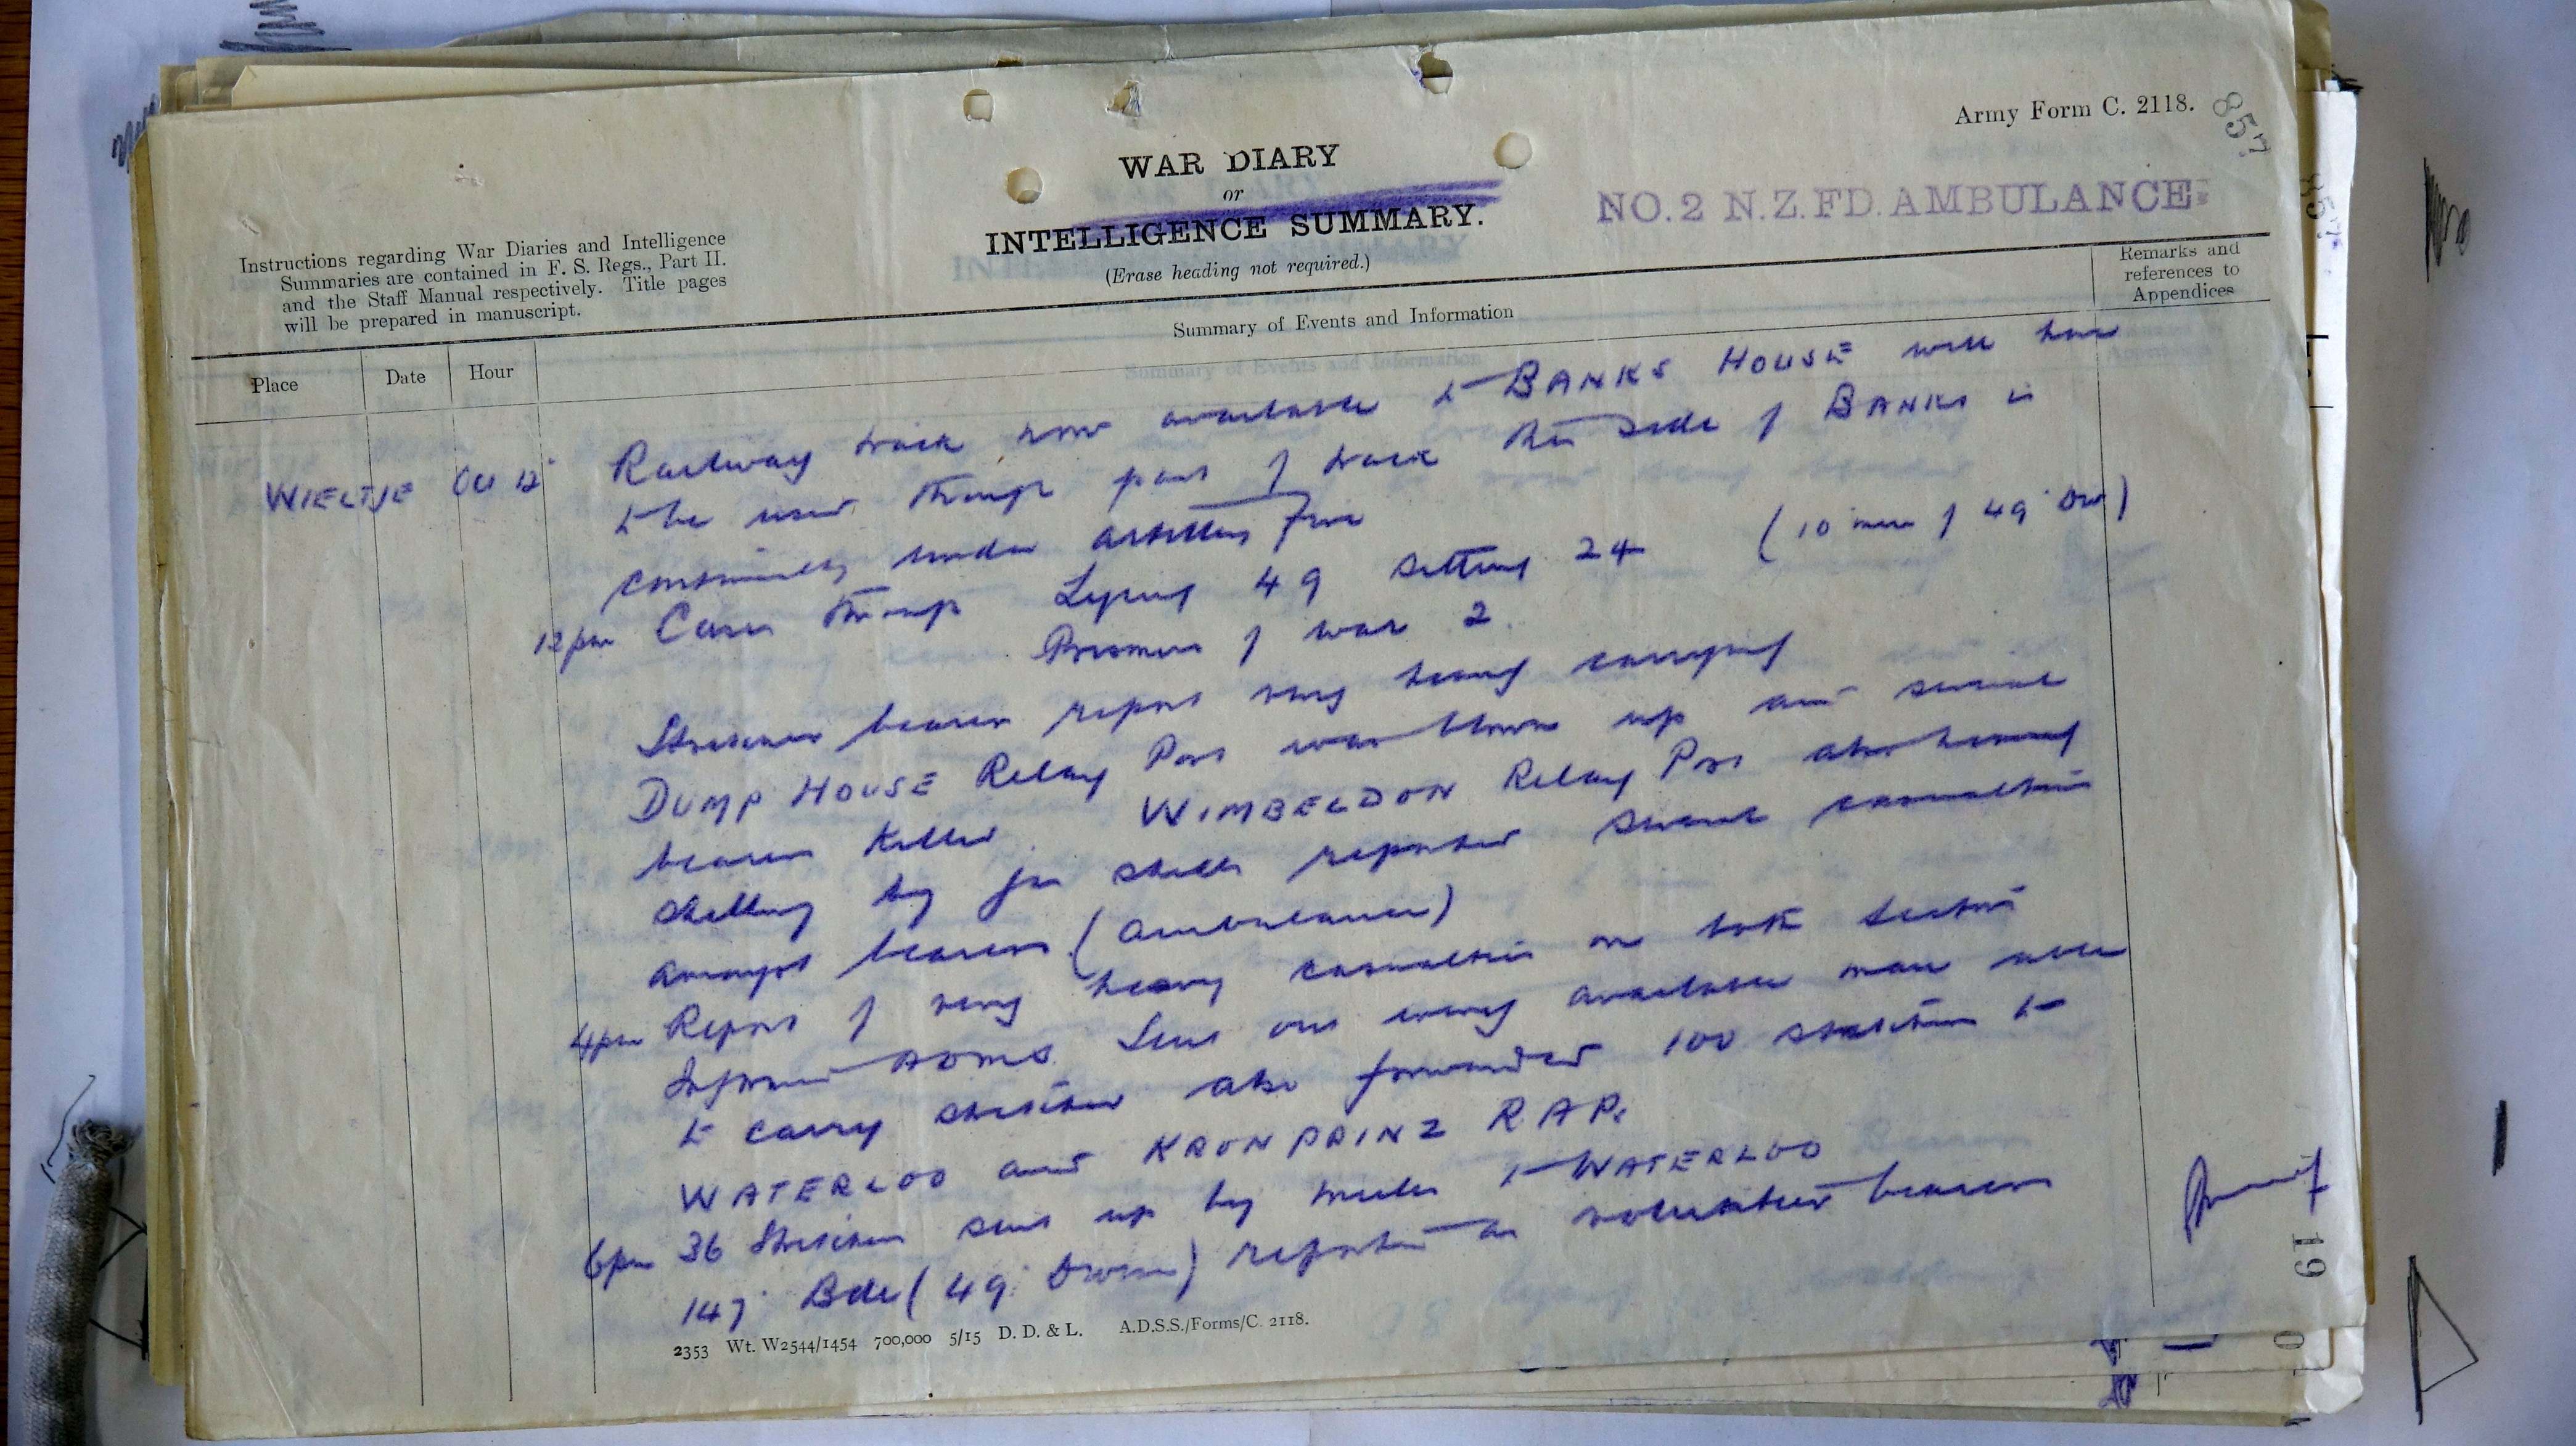 Army Form C. 2118.
857
WAR DIARY
or
INTELLIGENCE SUMMARY.
(Erase heading not required.)
NO. 2 N.Z. FD. AMBULANCE
Instructions regarding War Diaries and Intelligence
Summaries are contained in F. S. Regs., Part II.
and the Staff Manual respectively. Title pages
will be prepared in manuscript.
Remarks and
references to
Appendices
Summary of Events and Information
Place Date Hour
WIELTJE Oct 12 Railway track now available to BANKS HOUSE will have
to be used though part of track this side of BANKS is
continually under artillery fire
12 pm Cases through Lying 49 sitting 24 (10 men of 49 Div)
Prisoners of war 2
Stretcher bearers report very heavy carrying
DUMP HOUSE Relay Post was blown up and several
bearers killed. WIMBELDON Relay Post also having
shelling by gas shells reported several casualties
amongst bearers (ambulance)
4 pm Report of very heavy casualties on both sectors
Informed ADMS. Sent out every available man able
to carry stretcher also forwarded 100 stretchers to
WATERLOO and KRONPRINZ R.A.P.
6 pm 36 Stretchers sent up by mules to WATERLOO
147 Bde (49 Division) reported as volunteer bearers
2353 Wt. W2544/1454 700,000 5/15 D. D. & L. A.D.S.S./Forms/C. 2118.
19